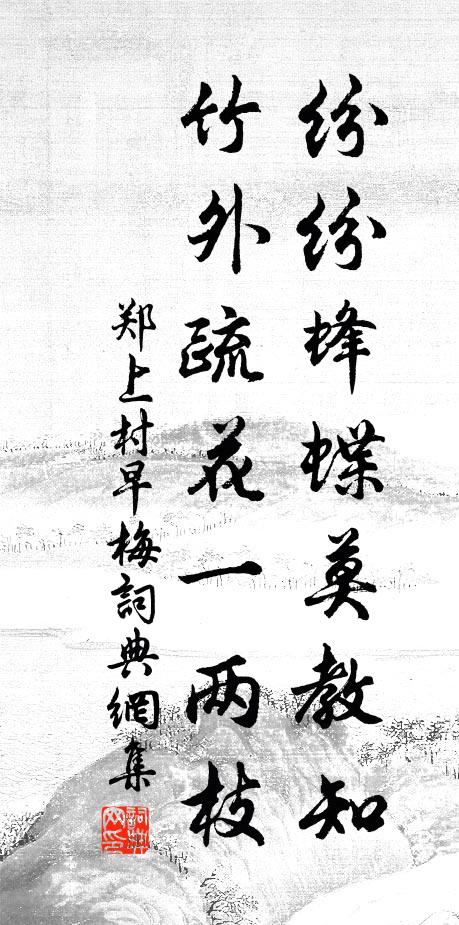 纷纷蜂蝶莫教知
竹外疏花一两枝
郑上村早梅詞典網集